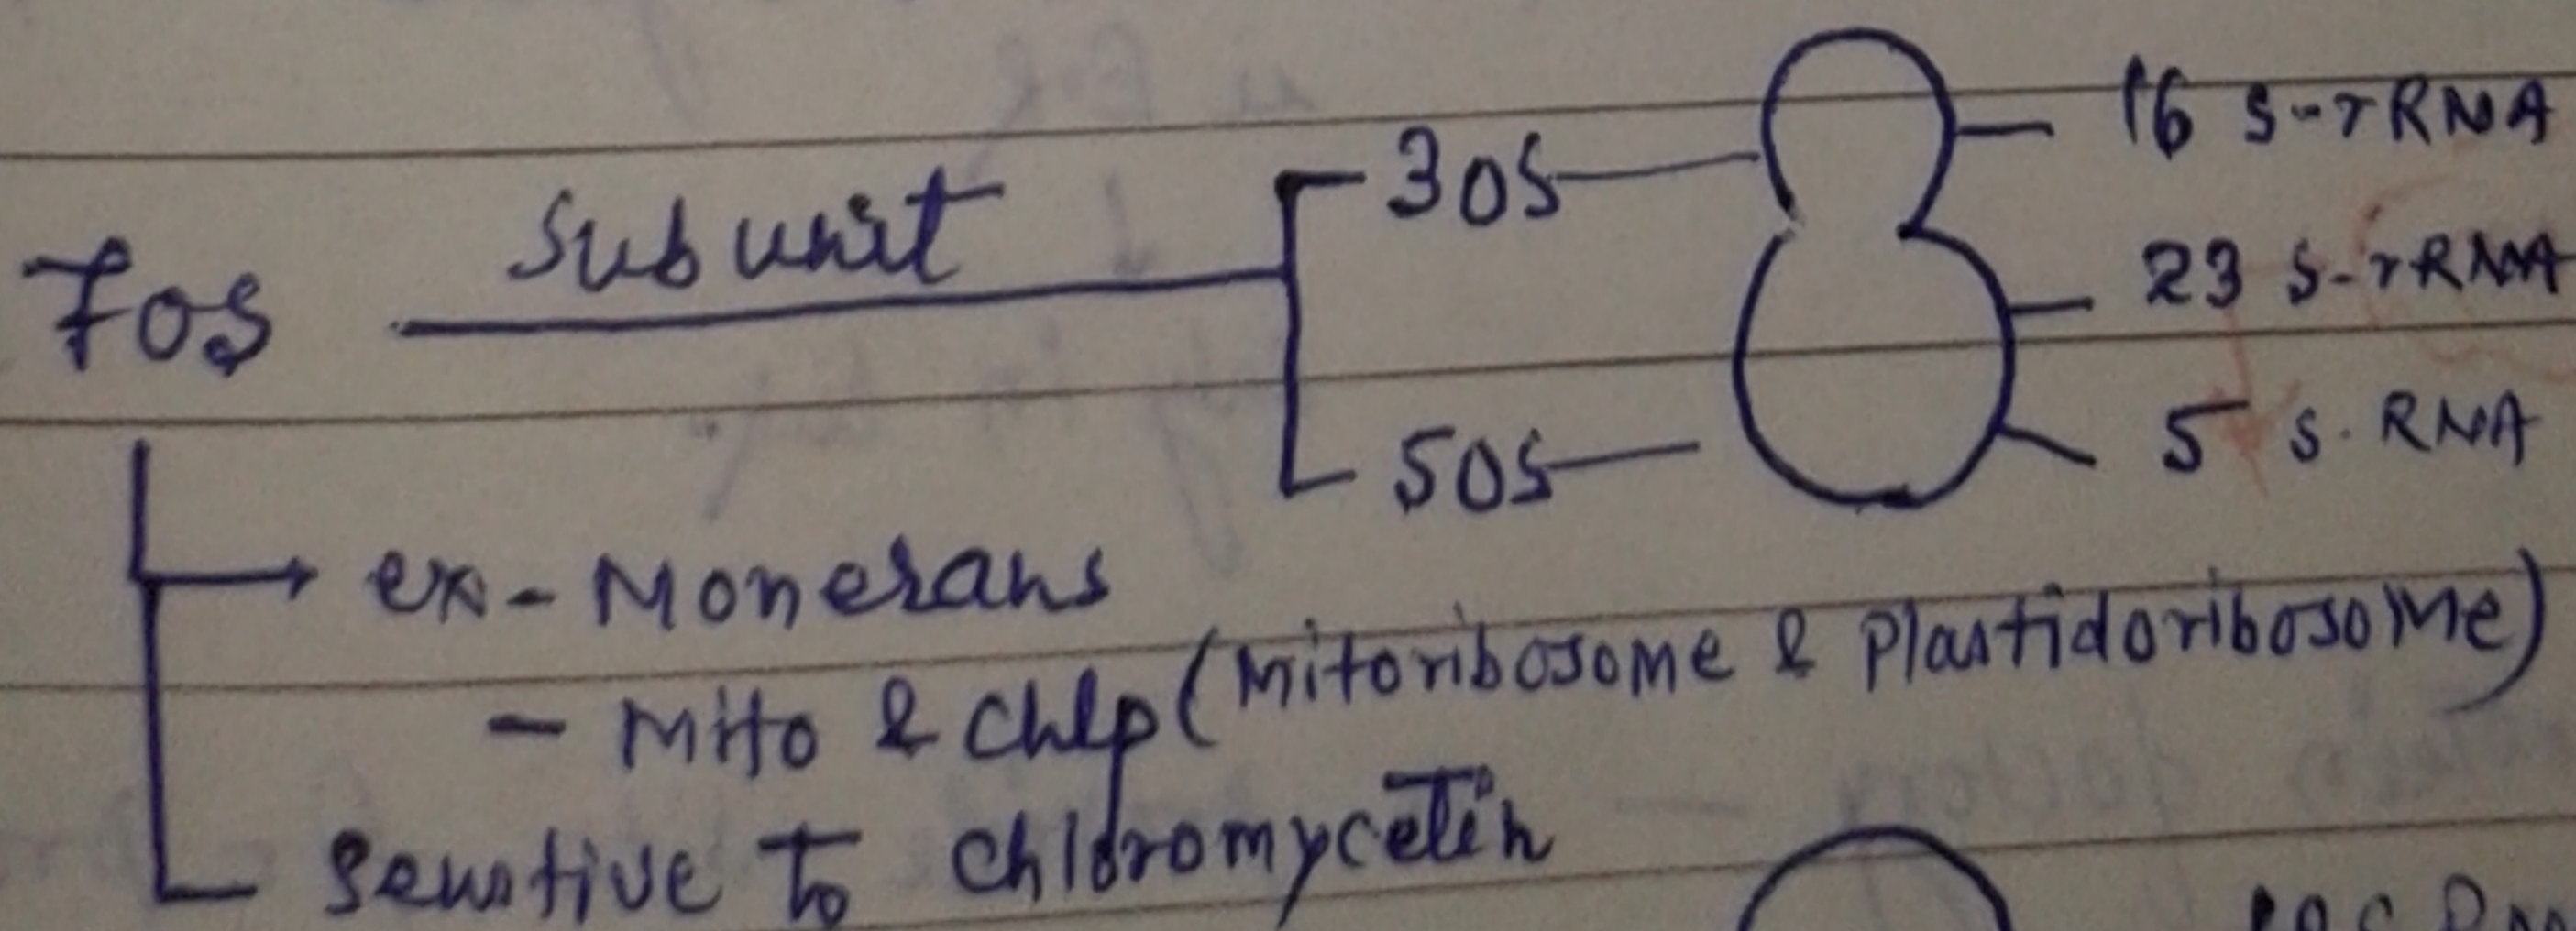 70S Subunit 30S 16 S-rRNA
23 S-rRNA
50S 5 S. RNA
ex- Monerans
- Mito & Chlp (Mitoribosome & Plastidoribosome)
Senstive To Chloromycetin